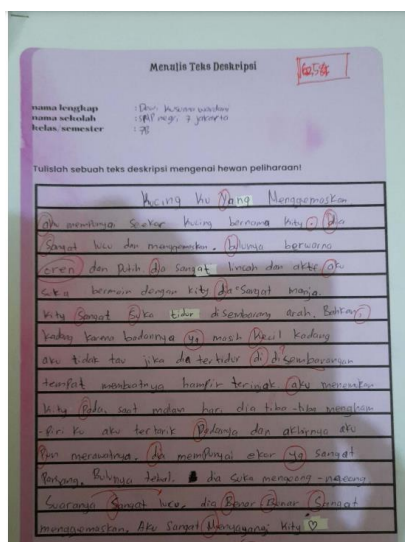 Menulis Teks Deskripsi
62,5
nama lengkap :
nama sekolah : negri 7 jakarta
kelas/semester :
Tulislah sebuah teks deskripsi mengenai hewan peliharaan!
Kucing Ku Yang Menggemaskan
aku mempunyai Seekor Kucing bernama Kity. dia
Sangat lucu dan menggemaskan. bulunya berwarna
oren dan Putih dia sangat lincah dan aktif aku
suka bermain dengan Kity dia Sangat manja.
Kity Sangat Suka tidur disembarang arah. Bahkan,
kadang karna badannya yg masih Kecil kadang
aku tidak tau jika dia tertidur di disembarangan
tempat membuatnya hampir terinjak aku menemukan
Kity Pada saat malam hari dia tiba-tiba mengham
-piri Ku aku tertarik Padanya dan akhirnya aku
Pun merawatnya. dia memPunyai ekor yg sangat
Panjang, Bulunya tebal. dia suka mengeong-ngeong
Suaranya Sangat lucu, dia Benar Benar Sangat
menggemaskan. Aku Sangat Menyayangi Kity ♡